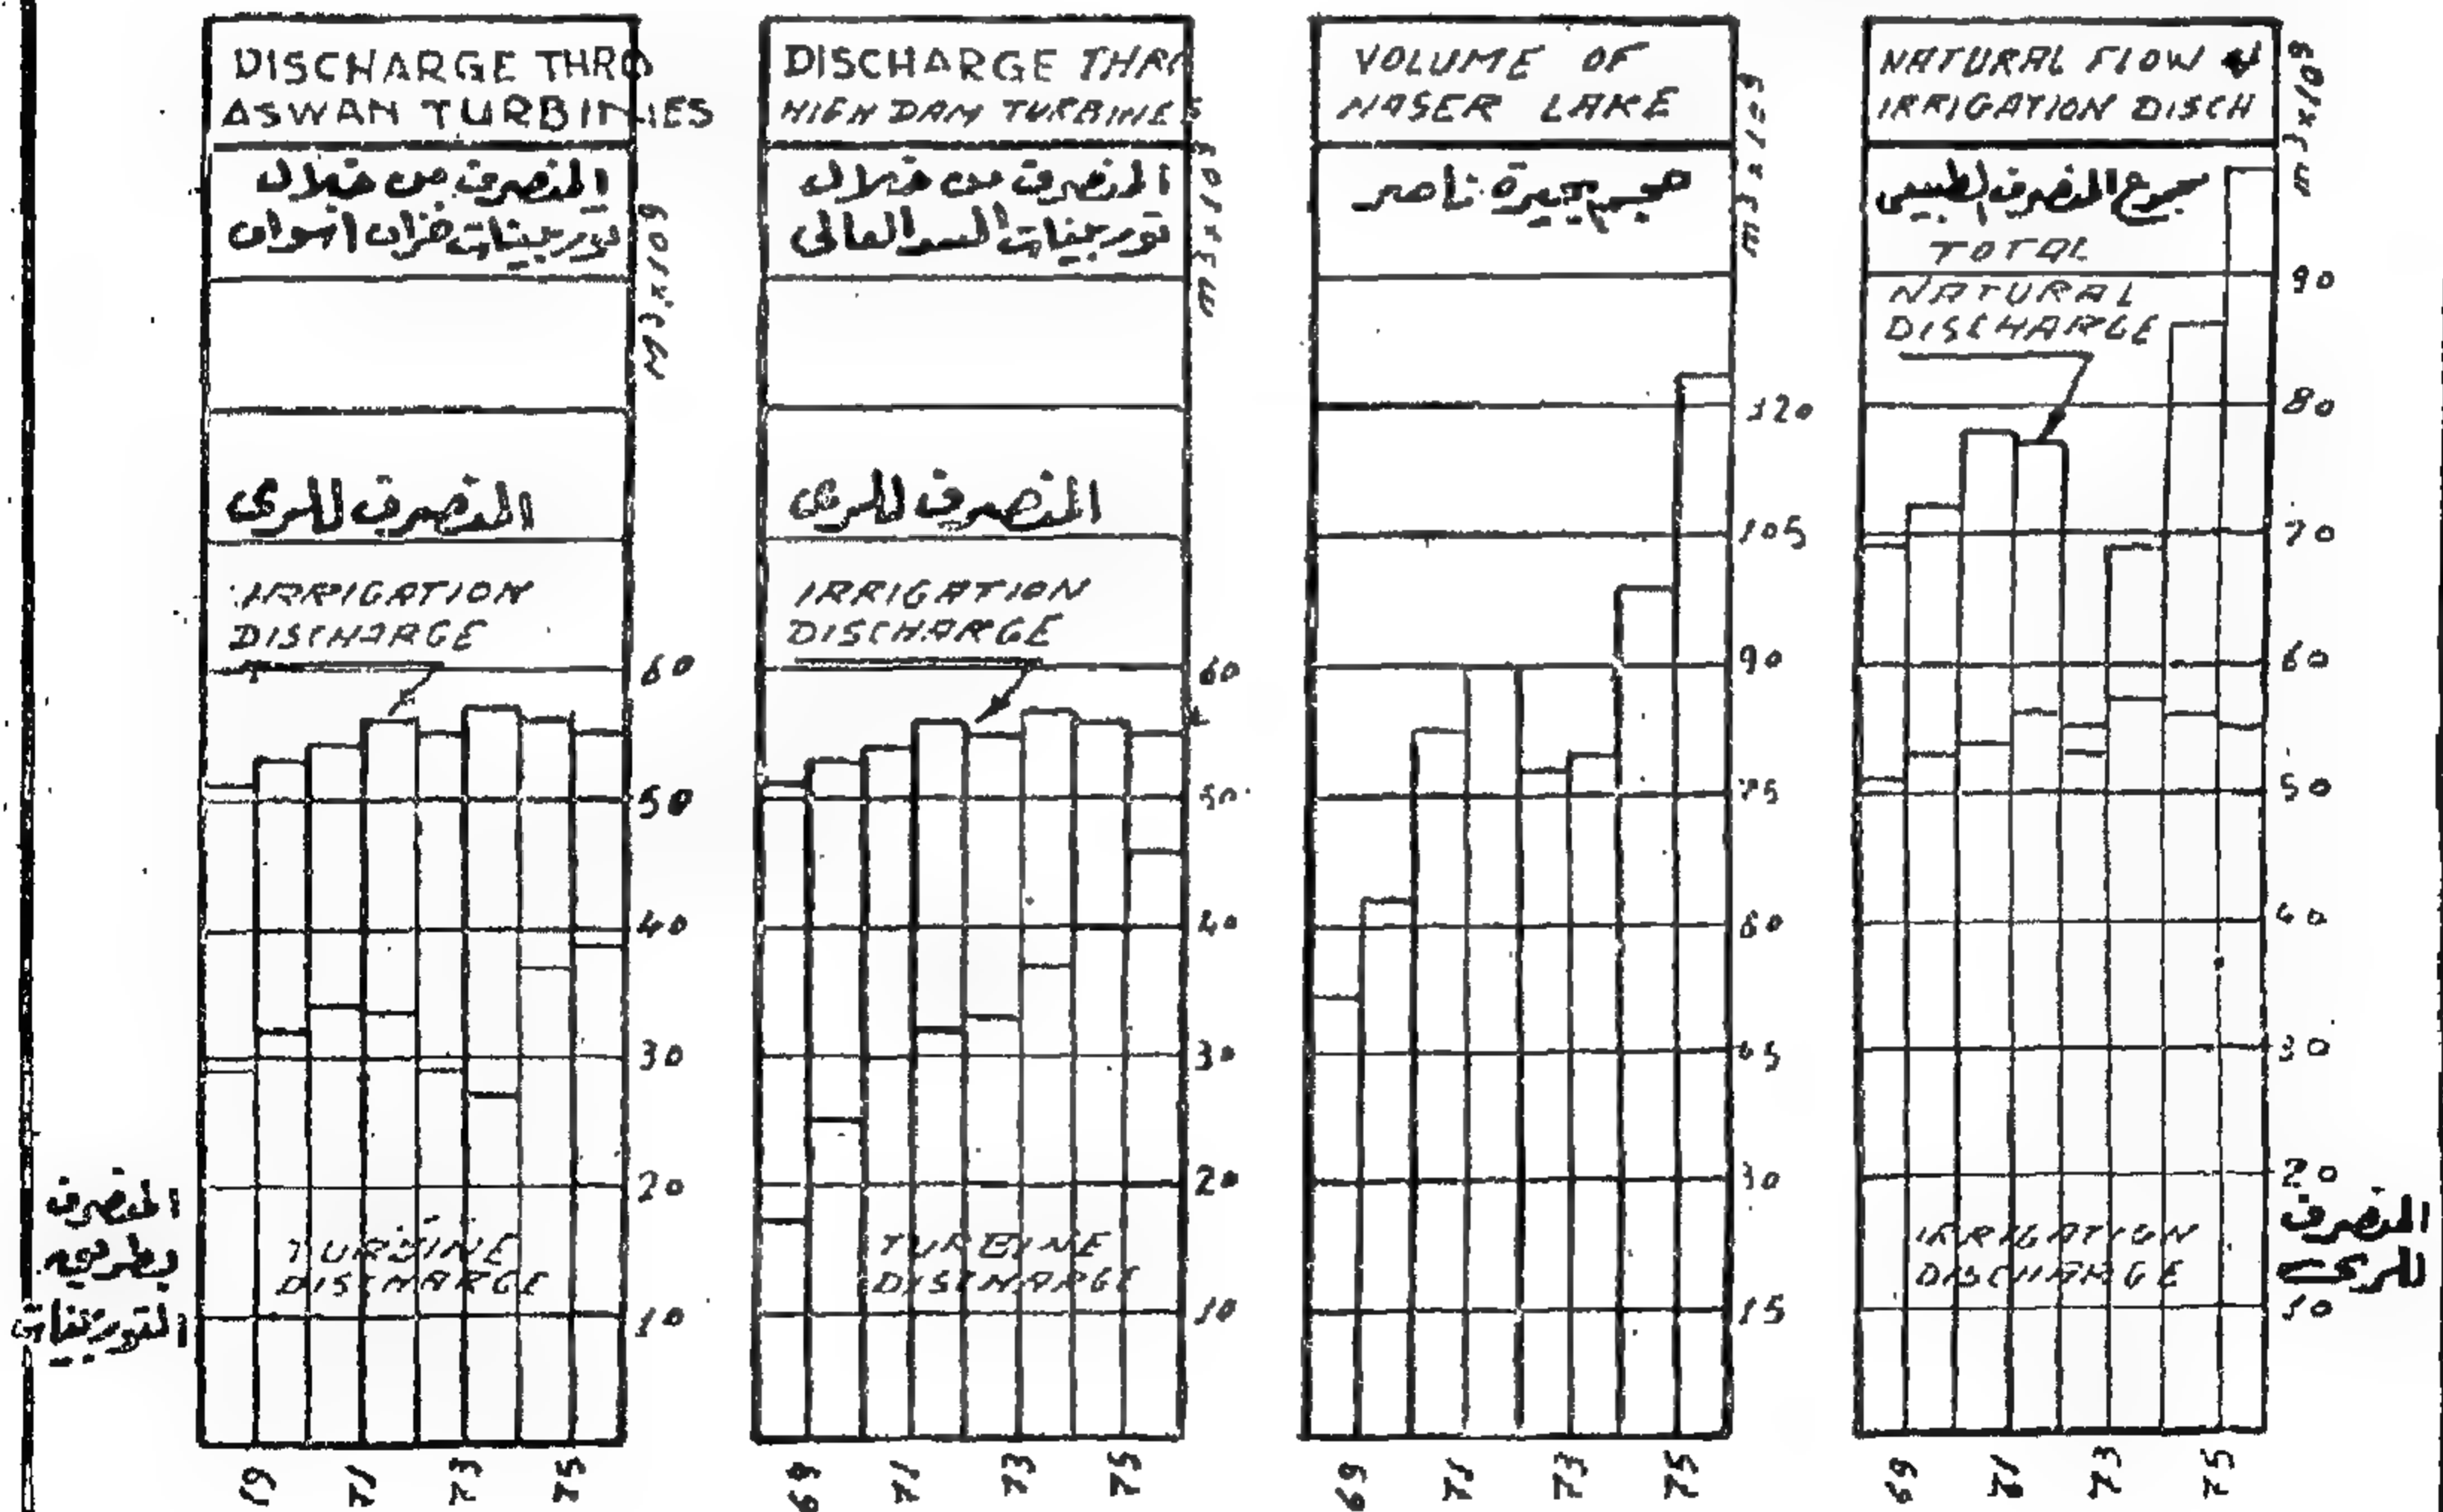 DISCHARGE THRO
ASWAN TURBINES
المنصرف من خلال
توربينات خزان اسوان
M3x109
المنصرف للرى
IRRIGATION
DISCHARGE
60
50
40
30
20
10
TURBINE
DISCHARGE
المنصرف
بطريق
التوربينات
69
71
73
75
DISCHARGE THRO
HIGH DAM TURBINES
المنصرف من خلال
توربينات السد العالى
m3x109
المنصرف للرى
IRRIGATION
DISCHARGE
60
50
40
30
20
10
TURBINE
DISCHARGE
69
71
73
75
VOLUME OF
NASER LAKE
حجم بحيرة ناصر
m3x109
120
105
90
75
60
45
30
15
69
71
73
75
NATURAL FLOW &
IRRIGATION DISCH
m3x109
مجموع المنصرف الطبيعى
TOTAL
NATURAL
DISCHARGE
90
80
70
60
50
40
30
20
10
IRRIGATION
DISCHARGE
المنصرف
للرى
69
71
73
75